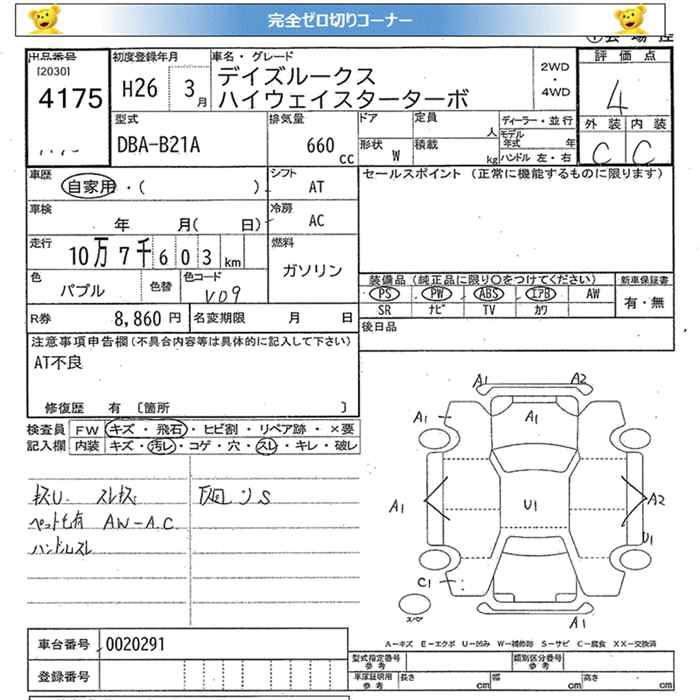 完全ゼロ切りコーナー
出品番号
[2030]
4175
初度登録年月
H26 3月
車名・グレード
デイズルークス
ハイウェイスターターボ
2WD
・
4WD
評価点
4
外装 内装
C C
型式
DBA-B21A
排気量
660 cc
ドア 定員 人
形状 W 積載 kg
ディーラー・並行
モデル年式 年
ハンドル 左・右
車歴
自家用・( )
シフト
AT
セールスポイント (正常に機能するものに限ります)
車検
年 月( 日)
冷房
AC
走行
10万7千603km
燃料
ガソリン
色
パブル
色替
色コード
V09
装備品 (純正品に限り○をつけてください)
PS PW ABS エアB AW
SR ナビ TV カワ
新車保証書
有・無
R券 8,860 円
名変期限 月 日
後日品
注意事項申告欄(不具合内容等は具体的に記入して下さい)
AT不良
修復歴 有 [箇所 ]
検査員
記入欄
FW キズ・飛石・ヒビ割・リペア跡・×要
内装 キズ・汚レ・コゲ・穴・スレ・キレ・破レ
スレキズ
ペット毛有 AW-A.C
ハンドルスレ
下廻りS
A1 A2
A1 A1
A1 U1 A2
U1
C1
スペア
A1
A-キズ E-エクボ U-凹み W-補修跡 S-サビ C-腐食 XX-交換済
車台番号 0020291
登録番号
型式指定番号
参考
類別区分番号
参考
車庫証明用
参考
長さ cm 幅 cm 高さ cm